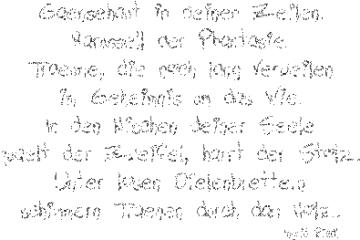 Gaensehaut in deiner Zeilen.
Karussell der Phantasie.
Traeume, die noch lang verweilen
in Geheimnis um das Wie.
In den Nischen deiner Seele
der Zweifel, harrt der Stolz.
Unter losen Dielenbrettern
schimmern Traenen durch das Holz.